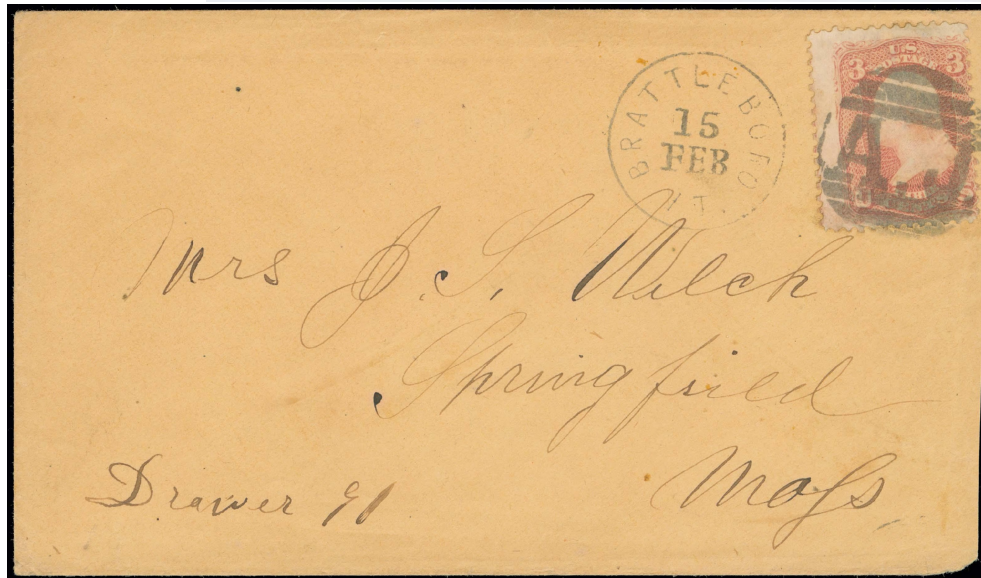 BRATTLEBORO
15
FEB
VT.
U.S.
POSTAGE
3 3
Mrs J. S. Welch
Springfield
Mass
Drawer 91